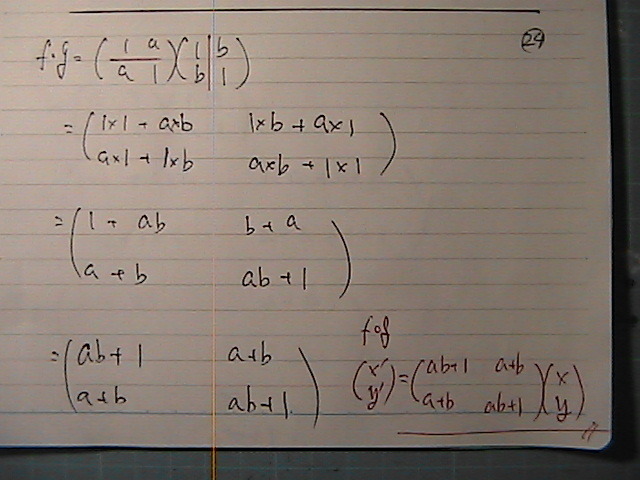 24
f·g = ( 1 a ) ( 1 b )
( a 1 ) ( b 1 )
= ( 1×1 + a×b 1×b + a×1 )
( a×1 + 1×b a×b + 1×1 )
= ( 1 + ab b + a )
( a + b ab + 1 )
= ( ab + 1 a+b )
( a+b ab+1 )
f∘g
( x′ ) = ( ab+1 a+b ) ( x )
( y′ ) ( a+b ab+1 ) ( y )